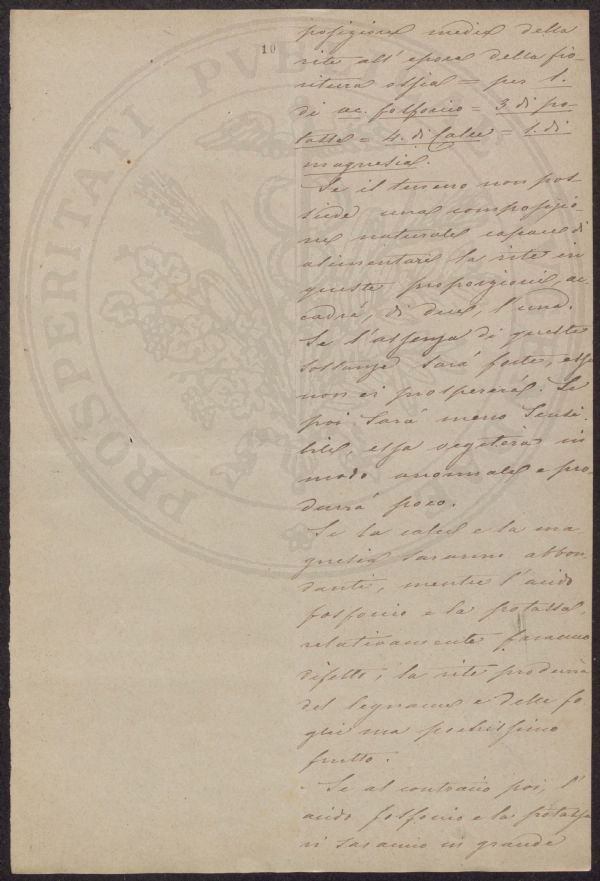 10
PROSPERITATI PVB
posizione media della
vite all' epoca della fio-
ritura ossia = per 1.
di ac. fosforico = 3. di po-
tassa = 4. di Calce = 1. di
magnesia.
Se il terreno non pos-
siede una composizio-
ne naturale capace di
alimentare la vite in
queste proporzioni ac-
cadrà, di due, l'una.
Se l'assenza di queste
sostanze sarà forte, essa
non ci prospererà. Se
poi sarà meno sensi-
bile, essa vegeterà in
modo anormale e pro-
durrà poco.
Se la calce e la ma-
gnesia saranno abbon-
danti, mentre l'acido
fosforico e la potassa,
relativamente faranno
difetto, la vite produrrà
del legname e delle fo-
glie ma pochissimo
frutto.
Se al contrario poi, l'
acido fosforico e la potassa
vi saranno in grande